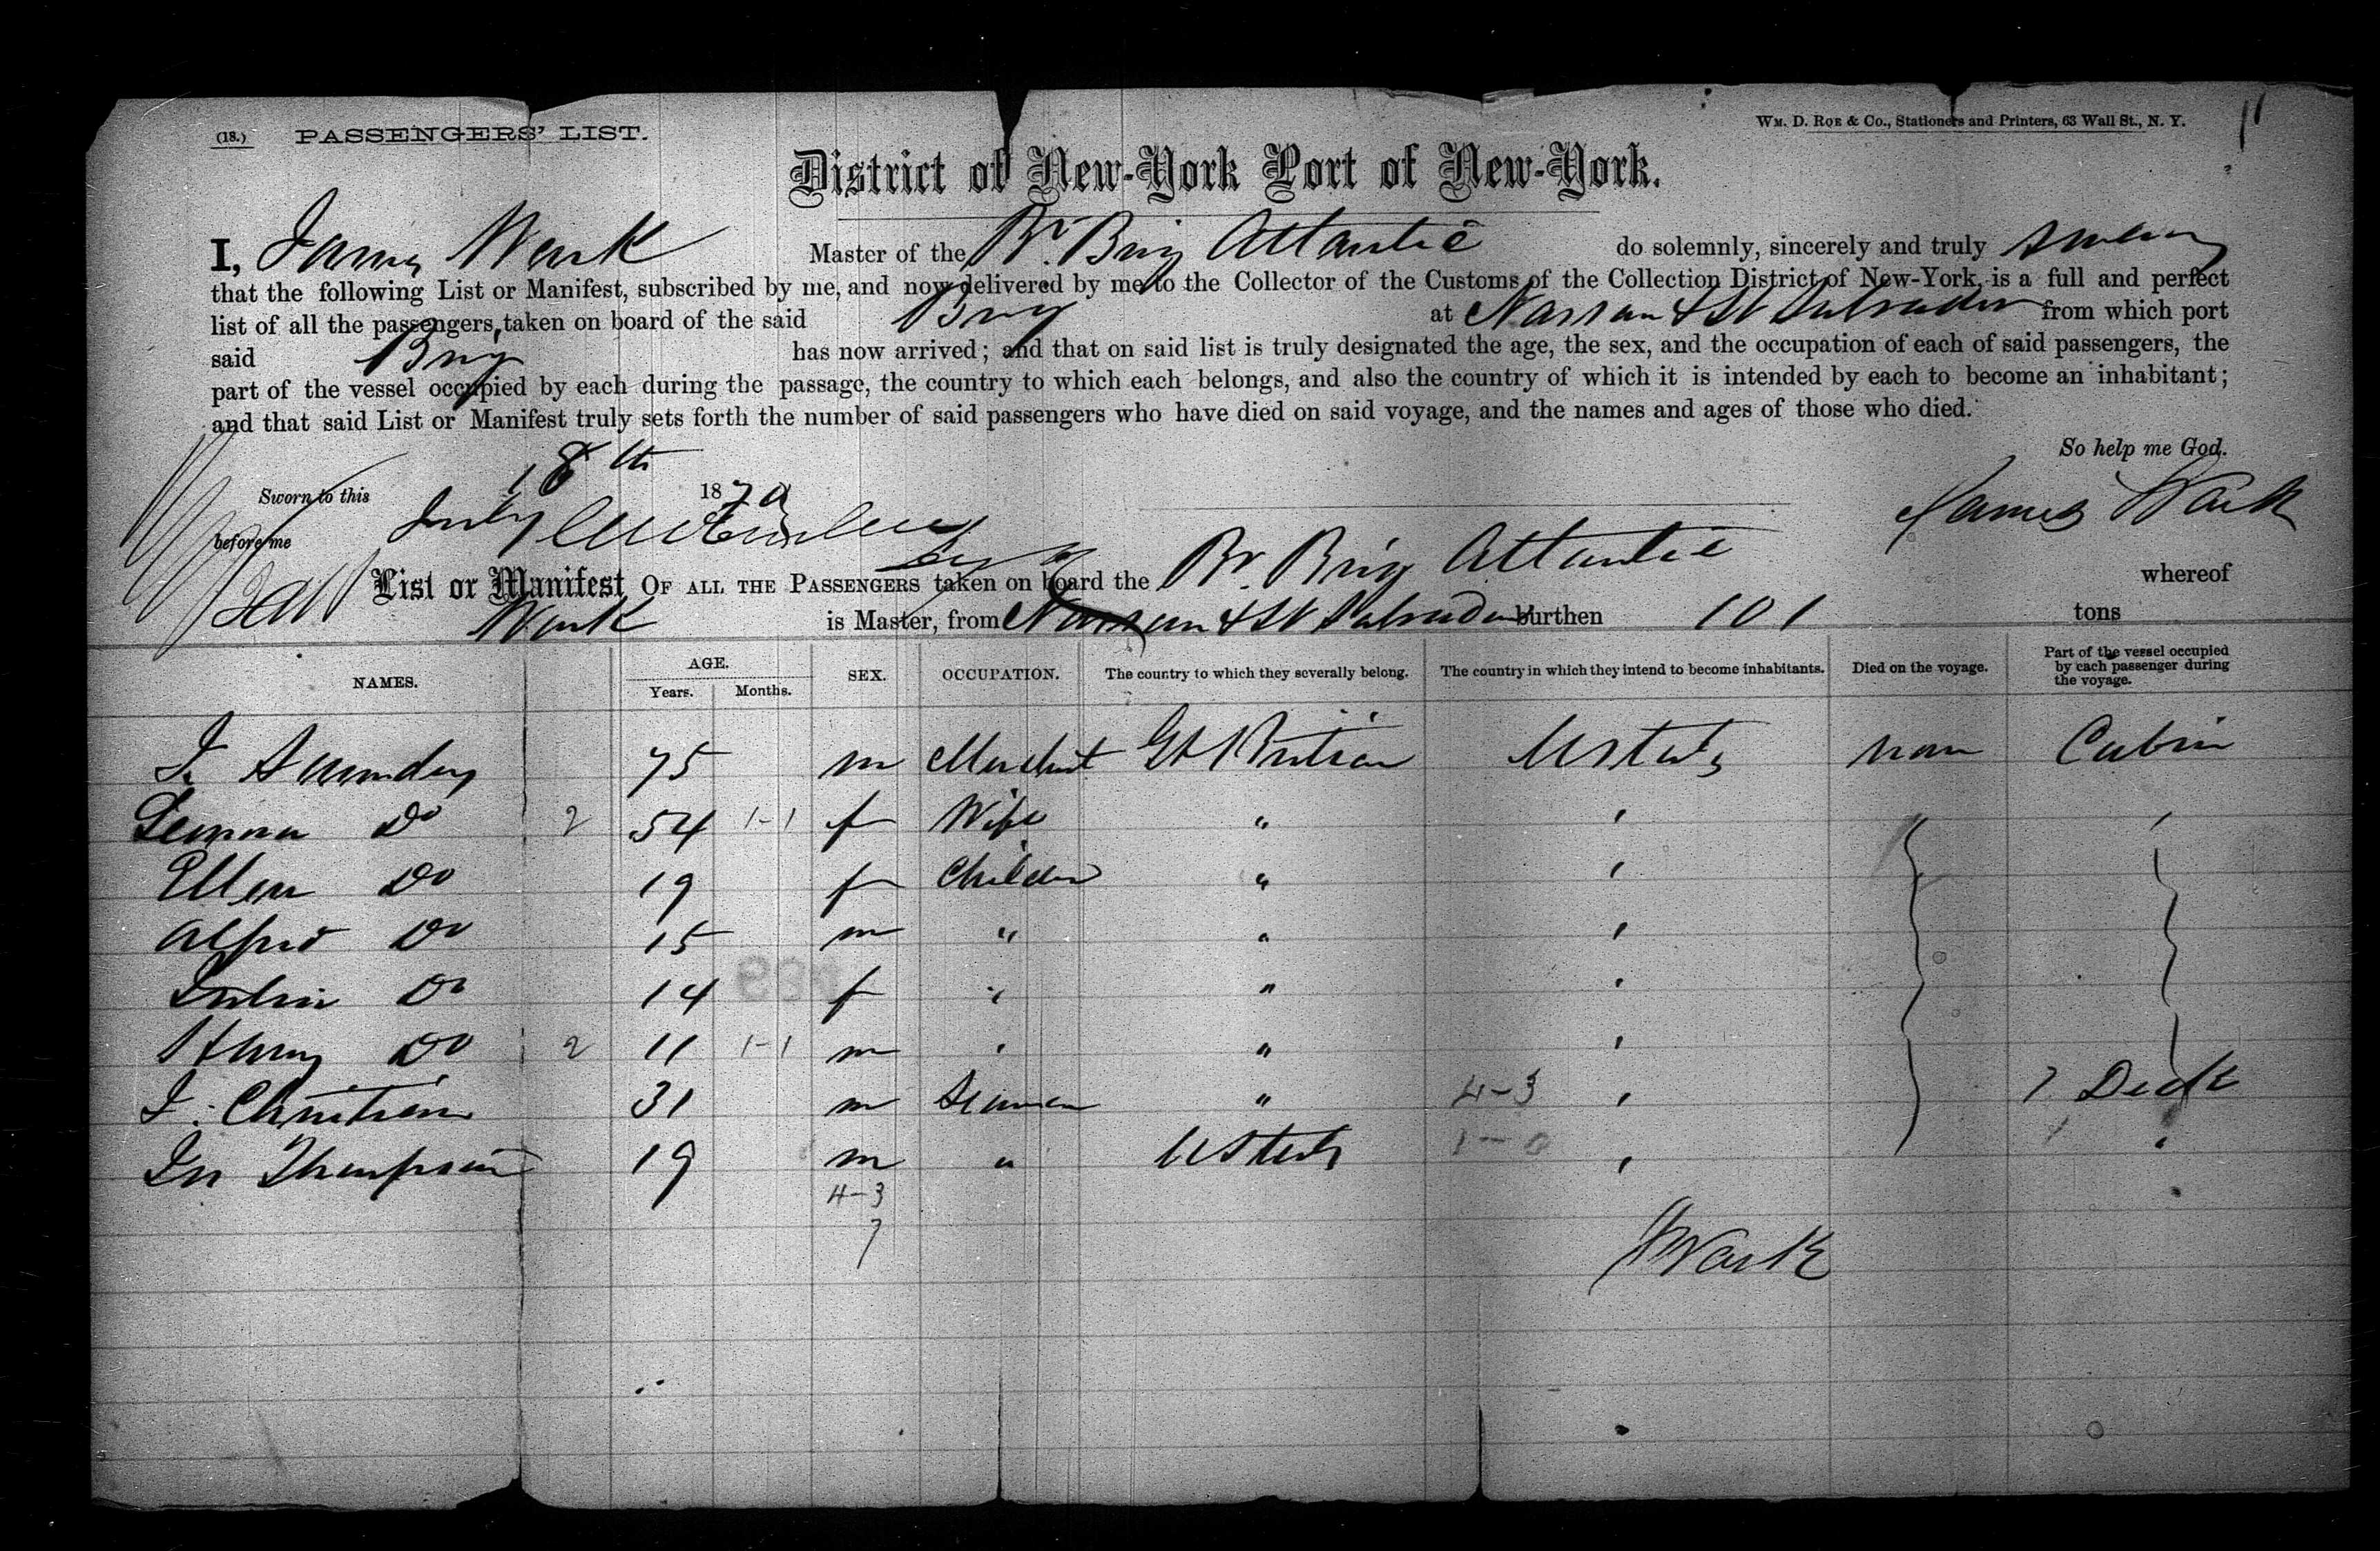 (18.) PASSENGERS' LIST.
WM. D. ROE & Co., Stationers and Printers, 63 Wall St., N. Y.
District of New-York Port of New-York.
I, James Wark Master of the Br. Brig Atlantic do solemnly, sincerely and truly swear
that the following List or Manifest, subscribed by me, and now delivered by me to the Collector of the Customs of the Collection District of New-York, is a full and perfect
list of all the passengers, taken on board of the said Brig at Nassau & St Salvador from which port
said Brig has now arrived; and that on said list is truly designated the age, the sex, and the occupation of each of said passengers, the
part of the vessel occupied by each during the passage, the country to which each belongs, and also the country of which it is intended by each to become an inhabitant;
and that said List or Manifest truly sets forth the number of said passengers who have died on said voyage, and the names and ages of those who died.
So help me God.
Sworn to this 18th July 1870
James Wark
before me
List or Manifest OF ALL THE PASSENGERS taken on board the Br. Brig Atlantic whereof
Wark is Master, from Nassau & St Salvador burthen 101 tons
NAMES. AGE. Years. Months. SEX. OCCUPATION. The country to which they severally belong. The country in which they intend to become inhabitants. Died on the voyage. Part of the vessel occupied by each passenger during the voyage.
J. Saunders 75 m Merchant Gt Britian U States non Cabin
Do 2 54 1-1 f Wife " ' '
Ellen Do 19 f Children " '
Alfred Do 15 m " " '
Do 14 f " " '
Henry Do 2 11 1-1 m ' " '
J. Christian 31 m Seaman " 4-3 ' 7 Deck
Jn Thompson 19 m " U States 1-0 ' "
4-3
7
J Wark